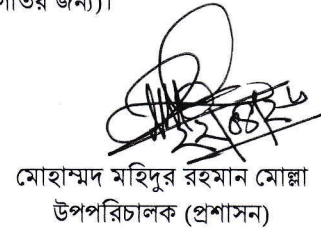 গতির জন্য)।
মোহাম্মদ মহিদুর রহমান মোল্লা
উপপরিচালক (প্রশাসন)